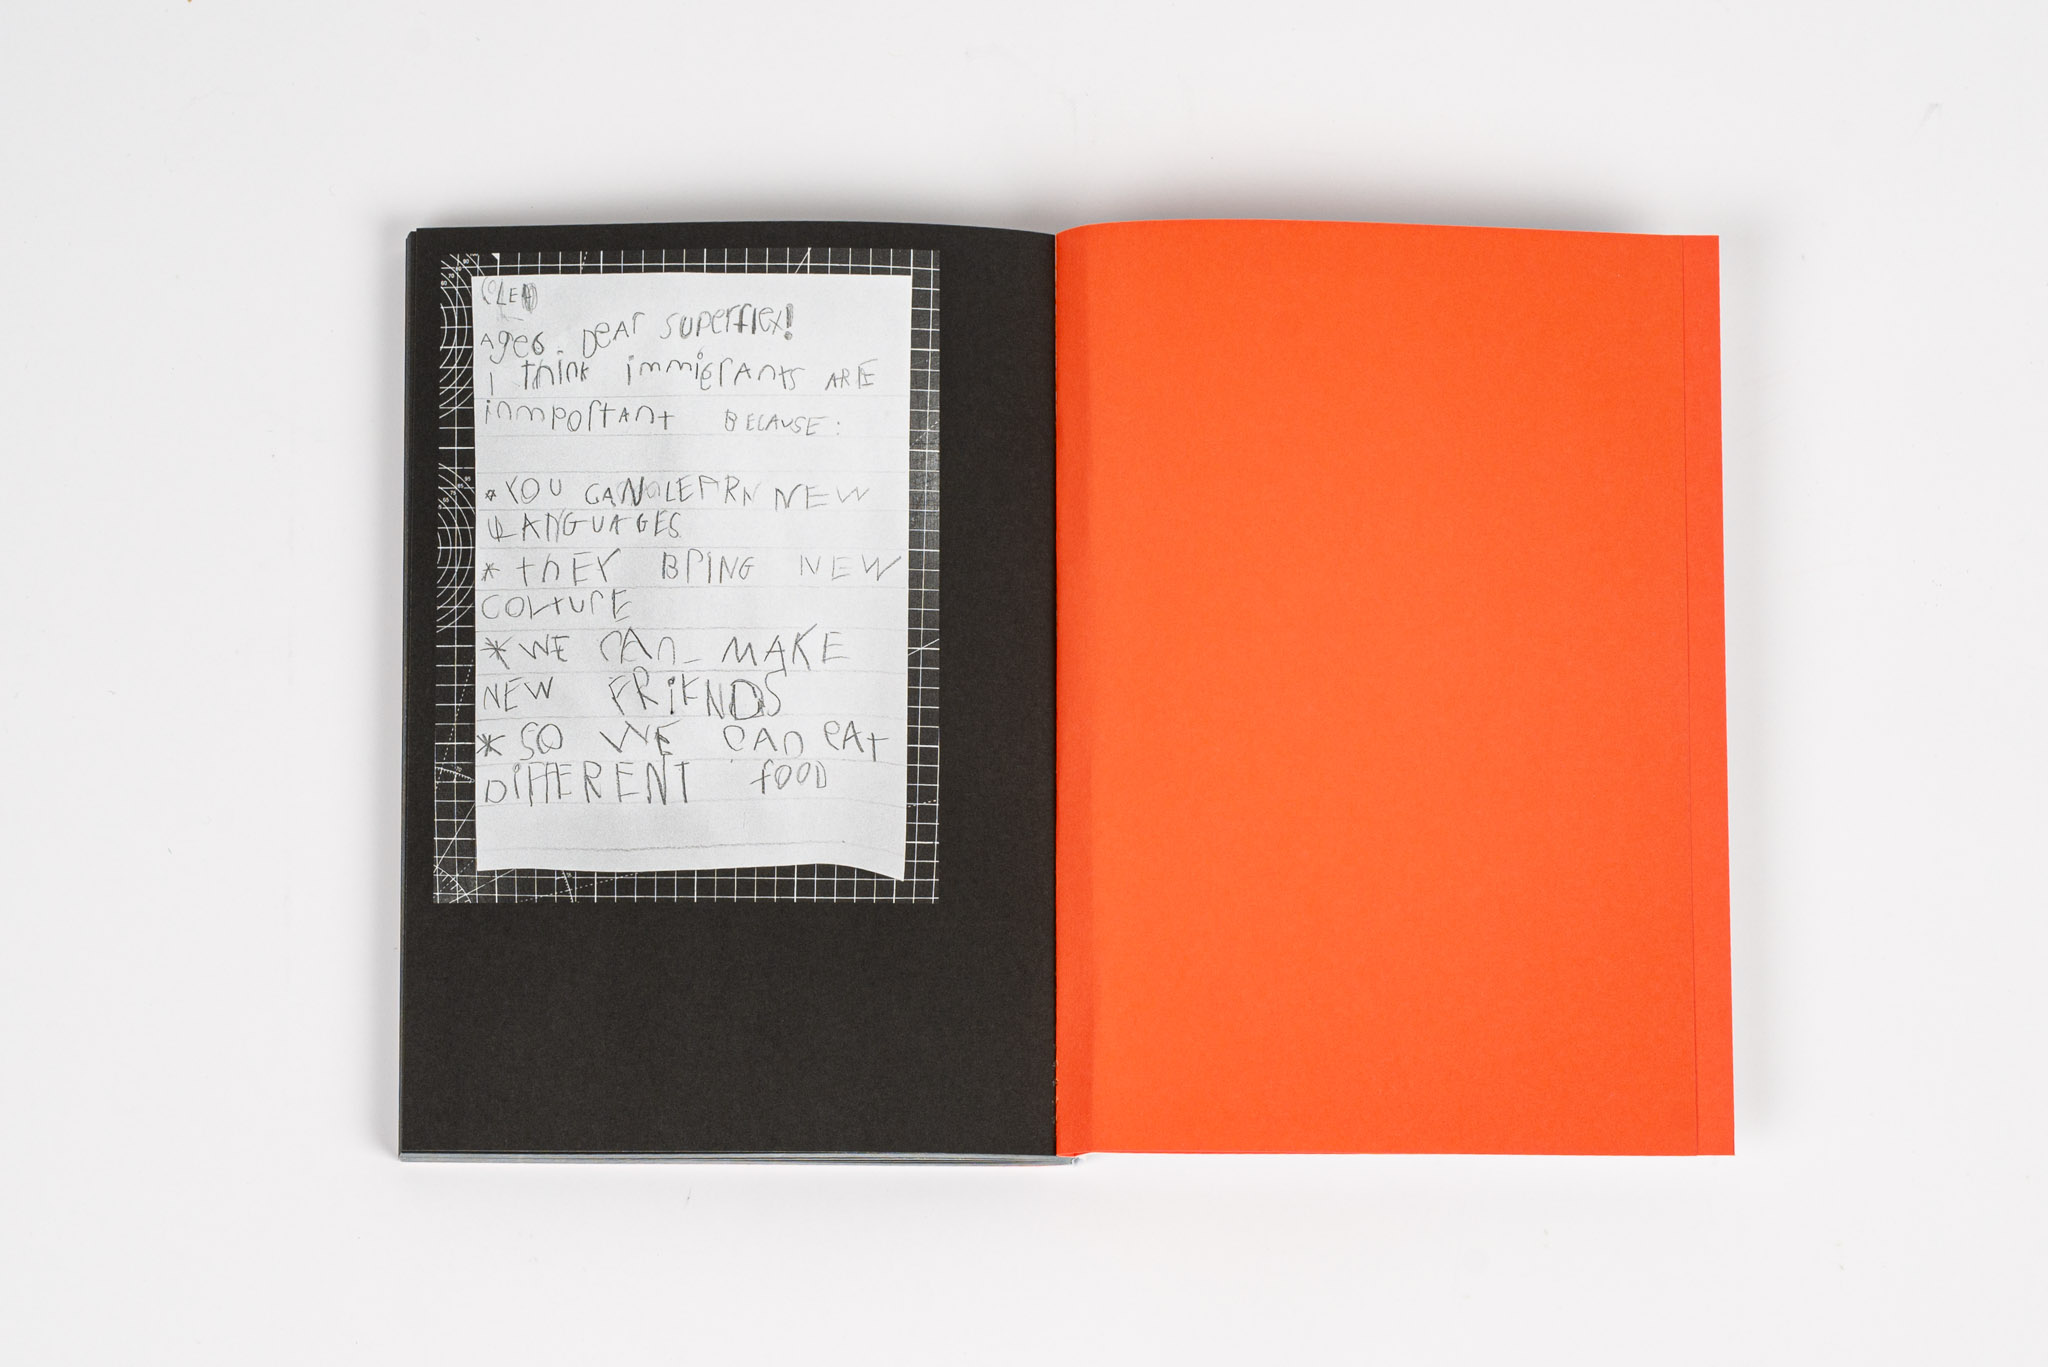 CLEO
Age6. DeAr superflex!
I think immigrAnts ARE
inmportAnt BECAUSE:
*YOU CAN LEARN NEW
LANGUAGES
* thEY BRING NEW
COLtUrE
*WE CAn MAKE
NEW FRiENDS
*SO WE CAn eAt
DiFFERENT fOOD